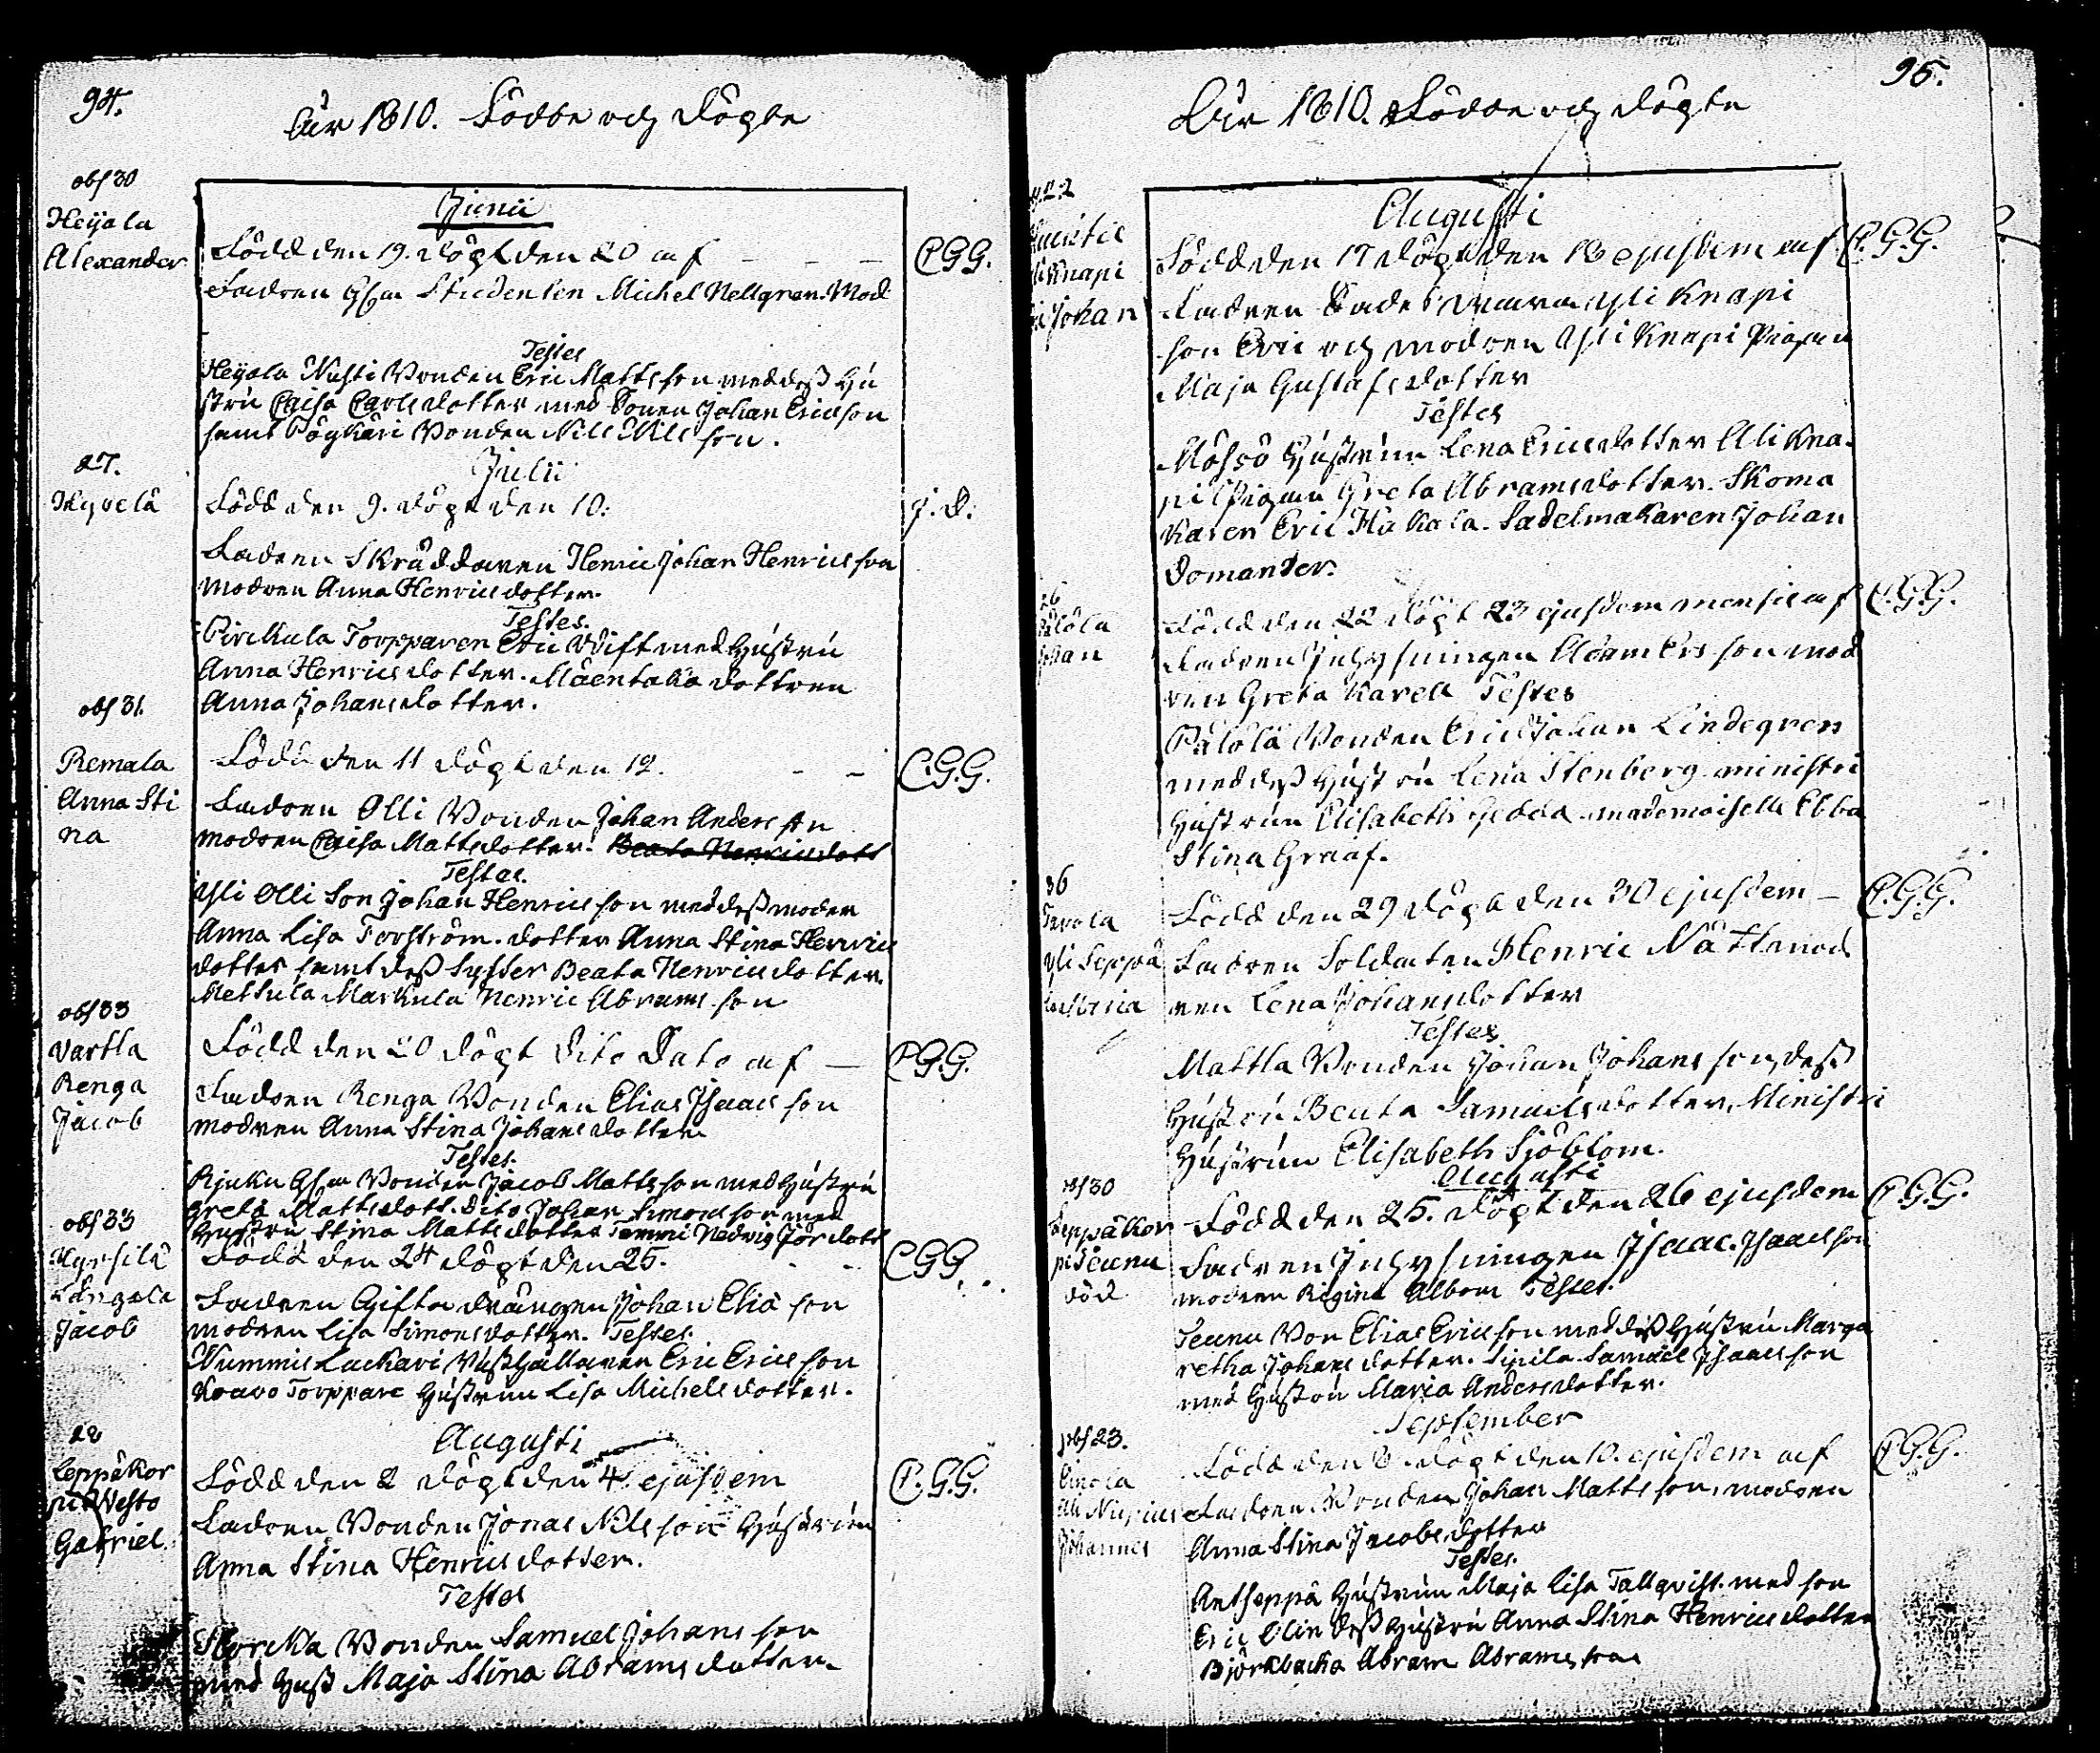 94.
År 1810. Födde och Döpte
obs 30
Heijala
Alexander
Junii
Född den 19. döpt den 20 af
C.G.G.
Fadren Studenten Michel Nellgren. Mod
Testes
Heijala Bonden Eric Mattsson med dess Hu
stru Caisa Carlsdotter med Sonen Johan Ericsson
samt Bonden Nils Nilsson.
27.
Julii
Född den 9. döpt den 10.
J. D.
Fadren Skräddaren Henric Johan Henricsson
modren Anna Henricsdotter.
Testes.
Pirckula Torpparen Eric Vift med Hustru
Anna Henricsdotter. Mäentaka dottren
Anna Johansdotter.
obs 31.
Remala
Anna Sti
na
Född den 11 döpt den 12.
C.G.G.
Fadren Olli Bonden Johan Andersson
modren Caisa Mattsdotter. Beata Henricsdott
Testes.
Yli Olli Son Johan Henricsson med dess moder
Anna Lisa Forström. dotter Anna Stina Henrics
dotter samt dess Syster Beata Henricsdotter.
Mettula Markula Henric Abramsson
obs 33
Vartla
Renga
Jacob
Född den 20 döpt dito Dato af
C.G.G.
Fadren Renga Bonden Elias Isaacsson
modren Anna Stina Johansdotter
Testes.
Bonden Jacob Mattsson med Hustru
Greta Mattsdott. Dito Johan Simonsson med
Hustru Stina Mattsdotter Hedvig
obs 33
Jacob
Född den 24 döpt den 25.
C.G.G.
Fadren Gifta drängen Johan Elias son
modren Lisa Simonsdotter. Testes.
Nummis Luckari Hushållaren Eric Ericsson
Torppare Hustrun Lisa Michelsdotter.
28
Leppäkor
pi Westo
Gabriel
Augusti
Född den 2 döpt den 4. ejusdem
C.G.G.
Fadren Bonden Jonas Nilsson Hustrun
Anna Stina Henricsdotter.
Testes
Bonden Samuel Johansson
med Hust Maja Stina Abramsdotter.
95.
År 1810. Födde och Döpte
Yli Knapi
Johan
Augusti
Född den 17 döpt den 18 ejusdem af
C.G.G.
Fadren Yli Knapi
son Eric och modren Yli Knapi Pigan
Maja Gustafsdotter
Testes
Hustrun Lena Ericsdotter Ali Kna-
pi Pigan Greta Abramsdotter. Skoma
karen Eric Hakala. Sadelmakaren Johan
Domander.
26
Pälölä
Johan
Född den 22 döpt 23 ejusdem mensis af
C.G.G.
Fadren Inhysingen Adam Ersson mod
ren Greta Karell Testes
Pälölä Bonden Eric Johan Lindegren
med dess Hustru Lena Stenberg. ministri
Hustrun Elisabeth Gedda. mademoiselle Ebba
Stina Graaf.
36
Yli Seppä
Född den 29 döpt den 30 ejusdem
C.G.G.
Fadren Soldaten Henric Nätt mod
ren Lena Johansdotter
Testes
Mattla Bonden Johan Johansson, dess
Hustru Beata Samuelsdotter, Ministri
Hustrun Elisabeth Sjöblom.
Augusti
obs 30
Leppäkor
pi Teunu
död
Född den 25. döpt den 26 ejusdem
C.G.G.
Fadren Inhysingen Isaac Isaacsson
modren Regina Albom Testes.
Teunu Bon Elias Ericsson med dess Hustru Marga
retha Johansdotter. Sipila Samuel Isaacsson
med Hustru Maria Andersdotter.
September
obs 23.
Johannes
Född den 8 döpt den 10. ejusdem af
C.G.G.
Fadren Bonden Johan Mattsson, modren
Anna Stina Jacobsdotter
Testes.
Antseppä Hustrun Maja Lisa Tallqvist. med son
Eric Olin dess Hustru Anna Stina Henricsdotter
Björkbacka Abram Abramsson